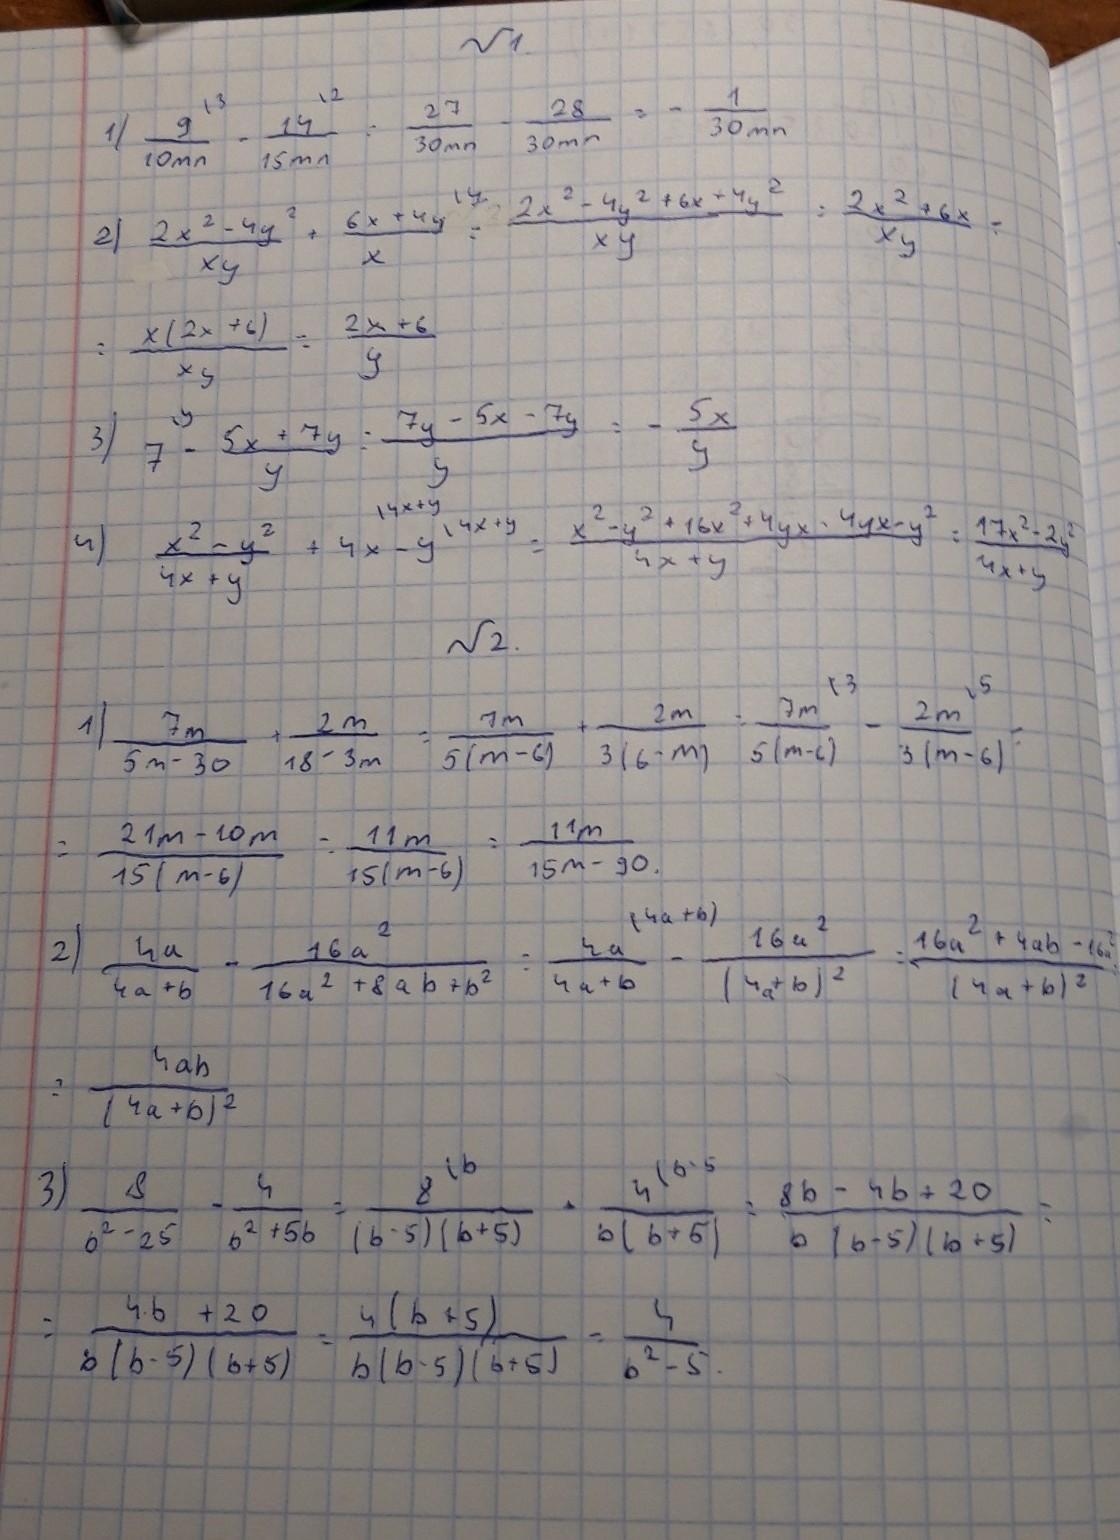 √1.
1) 9\3/10mn - 14\2/15mn = 27/30mn - 28/30mn = - 1/30mn
2) 2x² - 4y²/xy + 6x + 4y\y/x = 2x² - 4y² + 6x + 4y²/xy = 2x² + 6x/xy =
= x(2x + 6)/xy = 2x + 6/y
3) 7\y - 5x + 7y/y = 7y - 5x - 7y/y = - 5x/y
4) x² - y²/4x + y + 4x\4x+y - y\4x+y = x² - y² + 16x² + 4yx - 4yx - y²/4x + y = 17x² - 2y²/4x + y
√2.
1) 7m/5m - 30 + 2m/18 - 3m = 7m/5(m - 6) + 2m/3(6 - m) = 7m\3/5(m - 6) - 2m\5/3(m - 6) =
= 21m - 10m/15(m - 6) = 11m/15(m - 6) = 11m/15m - 90.
2) 4a/4a + b - 16a²/16a² + 8ab + b² = 4a(4a + b)/4a + b - 16a²/(4a + b)² = 16a² + 4ab - 16a²/(4a + b)² =
= 4ab/(4a + b)²
3) 8/b² - 25 - 4/b² + 5b = 8\b/(b - 5)(b + 5) - 4\b - 5/b(b + 5) = 8b - 4b + 20/b(b - 5)(b + 5) =
= 4b + 20/b(b - 5)(b + 5) = 4(b + 5)/b(b - 5)(b + 5) = 4/b² - 5.